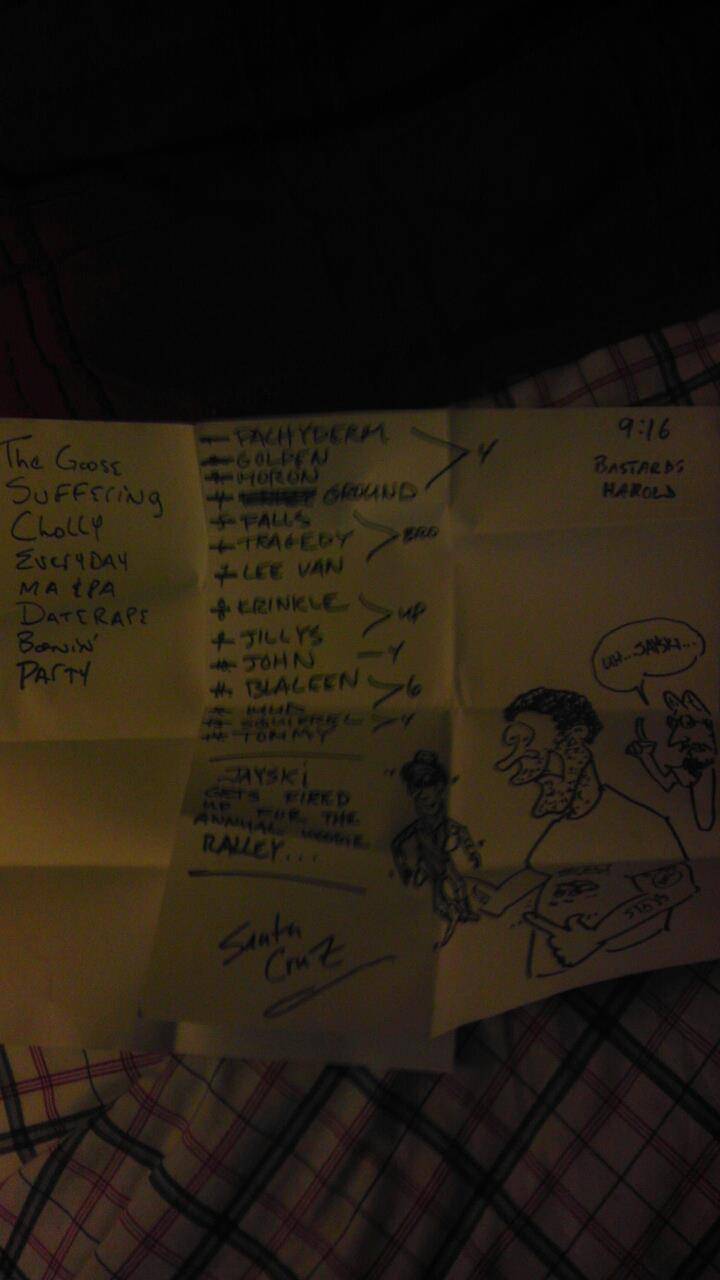 The Goose
Suffering
Cholly
Everyday
MA & PA
Daterape
Bonin'
Party
1 PACHYDERM
2 GOLDEN
3 MORON
4 GROUND
4
5 FALLS
6 TRAGEDY
7 LEE VAN
BRO
8 KRINKLE
9 JILLYS
UP
10 JOHN — 4
11 BLALEEN
12
6
13 SQUIRREL
14 TOMMY
4
JAYSKI
GETS FIRED
UP FOR THE
ANNUAL
RALLEY...
Santa
Cruz
9:16
BASTARDS
HAROLD
UH...JAYSKI...